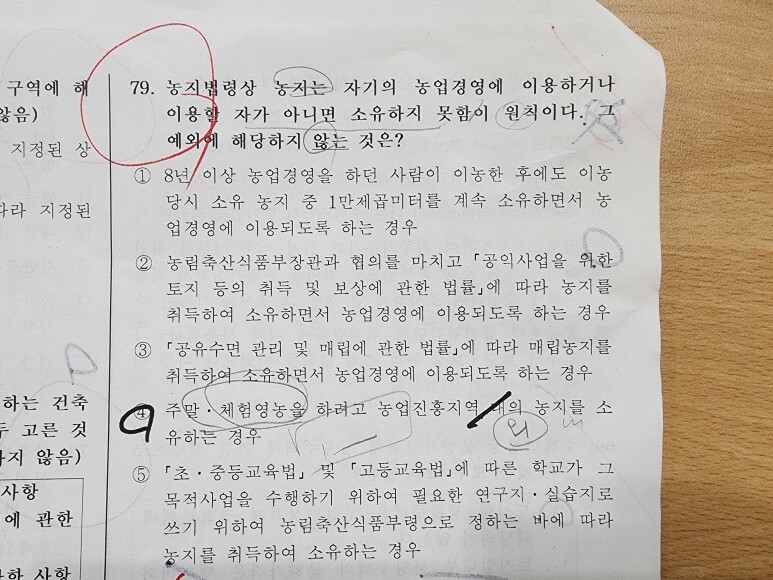 구역에 해
않음)
지정된 상
따라 지정된
하는 건축
두 고른 것
하지 않음)
사항
에 관한
79. 농지법령상 농지는 자기의 농업경영에 이용하거나
이용할 자가 아니면 소유하지 못함이 원칙이다. 그
예외에 해당하지 않는 것은?
① 8년 이상 농업경영을 하던 사람이 이농한 후에도 이농
당시 소유 농지 중 1만제곱미터를 계속 소유하면서 농
업경영에 이용되도록 하는 경우
② 농림축산식품부장관과 협의를 마치고 「공익사업을 위한
토지 등의 취득 및 보상에 관한 법률」에 따라 농지를
취득하여 소유하면서 농업경영에 이용되도록 하는 경우
③ 「공유수면 관리 및 매립에 관한 법률」에 따라 매립농지를
취득하여 소유하면서 농업경영에 이용되도록 하는 경우
④ 주말·체험영농을 하려고 농업진흥지역 내의 농지를 소
외
유하는 경우
⑤ 「초·중등교육법」 및 「고등교육법」에 따른 학교가 그
목적사업을 수행하기 위하여 필요한 연구지·실습지로
쓰기 위하여 농림축산식품부령으로 정하는 바에 따라
농지를 취득하여 소유하는 경우